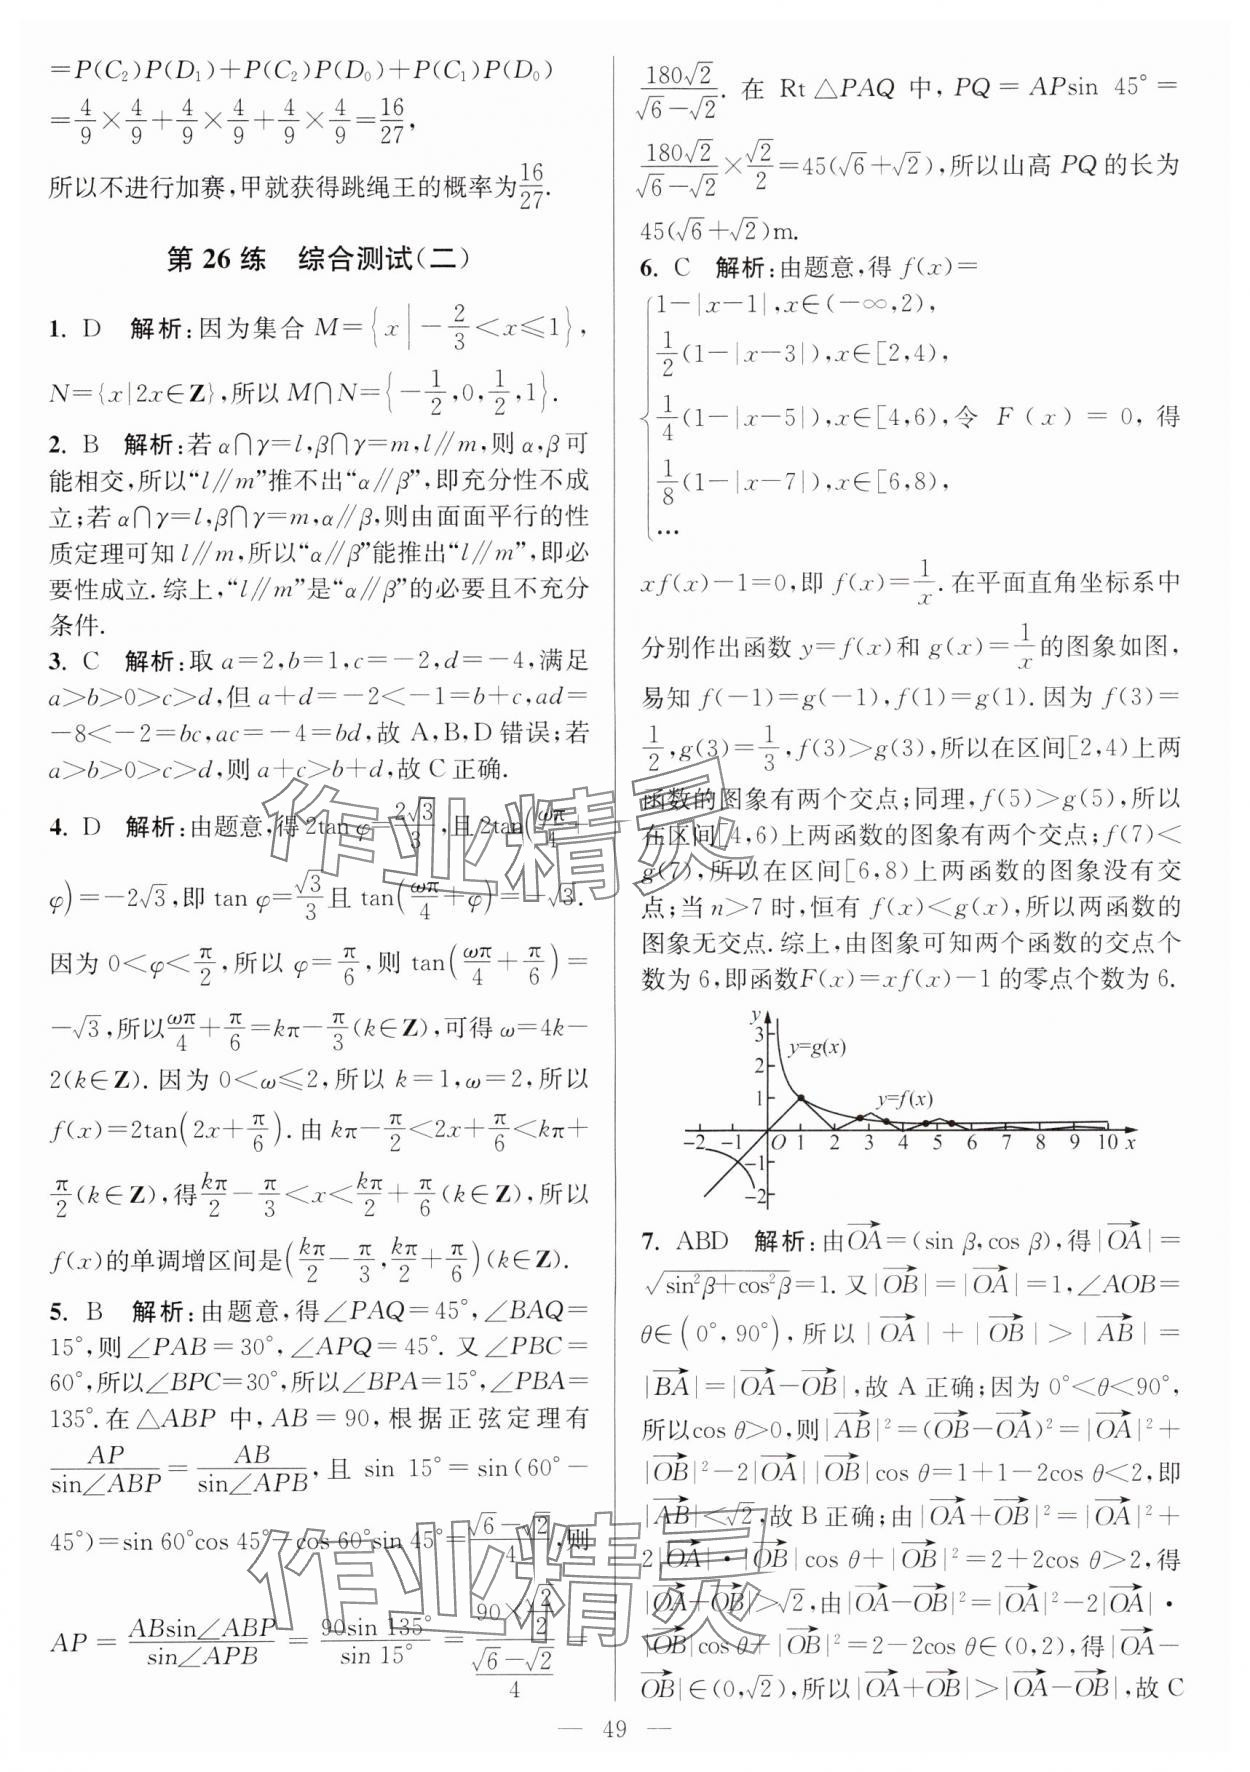 =P(C₂)P(D₁)+P(C₂)P(D₀)+P(C₁)P(D₀)
=4/9×4/9+4/9×4/9+4/9×4/9=16/27,
所以不进行加赛,甲就获得跳绳王的概率为16/27.
第 26 练 综合测试(二)
1. D 解析:因为集合 M={x|-2/3<x≤1},
N={x|2x∈Z},所以 M∩N={-1/2,0,1/2,1}.
2. B 解析:若 α∩γ=l,β∩γ=m,l∥m,则 α,β 可
能相交,所以“l∥m”推不出“α∥β”,即充分性不成
立;若 α∩γ=l,β∩γ=m,α∥β,则由面面平行的性
质定理可知 l∥m,所以“α∥β”能推出“l∥m”,即必
要性成立. 综上,“l∥m”是“α∥β”的必要且不充分
条件.
3. C 解析:取 a=2,b=1,c=-2,d=-4,满足
a>b>0>c>d,但 a+d=-2<-1=b+c,ad=
-8<-2=bc,ac=-4=bd,故 A,B,D 错误;若
a>b>0>c>d,则 a+c>b+d,故 C 正确.
4. D 解析:由题意,得 2tan φ=2√3/3,且 2tan(ωπ/4+
φ)=-2√3,即 tan φ=√3/3 且 tan(ωπ/4+φ)=-√3.
因为 0<φ<π/2,所以 φ=π/6,则 tan(ωπ/4+π/6)=
-√3,所以 ωπ/4+π/6=kπ-π/3(k∈Z),可得 ω=4k-
2(k∈Z). 因为 0<ω≤2,所以 k=1,ω=2,所以
f(x)=2tan(2x+π/6). 由 kπ-π/2<2x+π/6<kπ+
π/2(k∈Z),得 kπ/2-π/3<x<kπ/2+π/6(k∈Z),所以
f(x)的单调增区间是(kπ/2-π/3,kπ/2+π/6)(k∈Z).
5. B 解析:由题意,得∠PAQ=45°,∠BAQ=
15°,则∠PAB=30°,∠APQ=45°. 又∠PBC=
60°,所以∠BPC=30°,所以∠BPA=15°,∠PBA=
135°. 在△ABP 中,AB=90,根据正弦定理有
AP/sin∠ABP=AB/sin∠APB,且 sin 15°=sin(60°-
45°)=sin 60°cos 45°-cos 60°sin 45°=(√6-√2)/4,则
AP=ABsin∠ABP/sin∠APB=90sin 135°/sin 15°=(90×√2/2)/((√6-√2)/4)=
180√2/(√6-√2). 在 Rt△PAQ 中,PQ=APsin 45°=
180√2/(√6-√2)×√2/2=45(√6+√2),所以山高 PQ 的长为
45(√6+√2)m.
6. C 解析:由题意,得 f(x)=
1-|x-1|,x∈(-∞,2),
1/2(1-|x-3|),x∈[2,4),
1/4(1-|x-5|),x∈[4,6),令 F(x)=0,得
1/8(1-|x-7|),x∈[6,8),
…
xf(x)-1=0,即 f(x)=1/x. 在平面直角坐标系中
分别作出函数 y=f(x)和 g(x)=1/x 的图象如图,
易知 f(-1)=g(-1),f(1)=g(1). 因为 f(3)=
1/2,g(3)=1/3,f(3)>g(3),所以在区间[2,4)上两
函数的图象有两个交点;同理,f(5)>g(5),所以
在区间[4,6)上两函数的图象有两个交点;f(7)<
g(7),所以在区间[6,8)上两函数的图象没有交
点;当 n>7 时,恒有 f(x)<g(x),所以两函数的
图象无交点. 综上,由图象可知两个函数的交点个
数为 6,即函数F(x)=xf(x)-1 的零点个数为 6.
y
3
y=g(x)
2
1
y=f(x)
-2 -1 O 1 2 3 4 5 6 7 8 9 10 x
-1
-2
7. ABD 解析:由OA→=(sin β,cos β),得|OA→|=
√(sin²β+cos²β)=1. 又|OB→|=|OA→|=1,∠AOB=
θ∈(0°,90°),所以|OA→|+|OB→|>|AB→|=
|BA→|=|OA→-OB→|,故 A 正确;因为 0°<θ<90°,
所以cos θ>0,则|AB→|²=(OB→-OA→)²=|OA→|²+
|OB→|²-2|OA→||OB→|cos θ=1+1-2cos θ<2,即
|AB→|<√2,故 B 正确;由|OA→+OB→|²=|OA→|²+
2|OA→|·|OB→|cos θ+|OB→|²=2+2cos θ>2,得
|OA→+OB→|>√2,由|OA→-OB→|²=|OA→|²-2|OA→|·
|OB→|cos θ+|OB→|²=2-2cos θ∈(0,2),得|OA→-
OB→|∈(0,√2),所以|OA→+OB→|>|OA→-OB→|,故 C
— 49 —
作业精灵
作业精灵